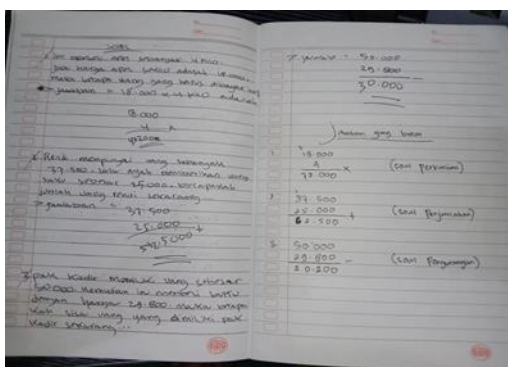 Soal
Ibu membeli apel sebanyak 4 kilo
jika harga apel perkilo adalah 18.000
maka berapa uang yang harus dibayar ibu
Jawaban = 18.000 x 4 kilo adalah
18.000
4 x
2. Reni mempunyai uang sebanyak
37.500. lalu ayah memberikan uang
saku sebesar 25.000. berapakah
jumlah uang Reni sekarang
> Jawaban = 37.500
25.000 +
3. pak Kadir memiliki uang sebesar
50.000 kemudian ia membeli buku
dengan harga 29.800. maka berapa
kah sisa uang yang dimiliki pak
Kadir sekarang...
> Jawaban = 50.000
29.800 —
30.000
Jawaban yang benar
1. 18.000
4 x (soal Perkalian)
72.000
2. 37.500
25.000 + (soal Penjumlahan)
62.500
3. 50.000
29.800 - (soal Pengurangan)
20.200